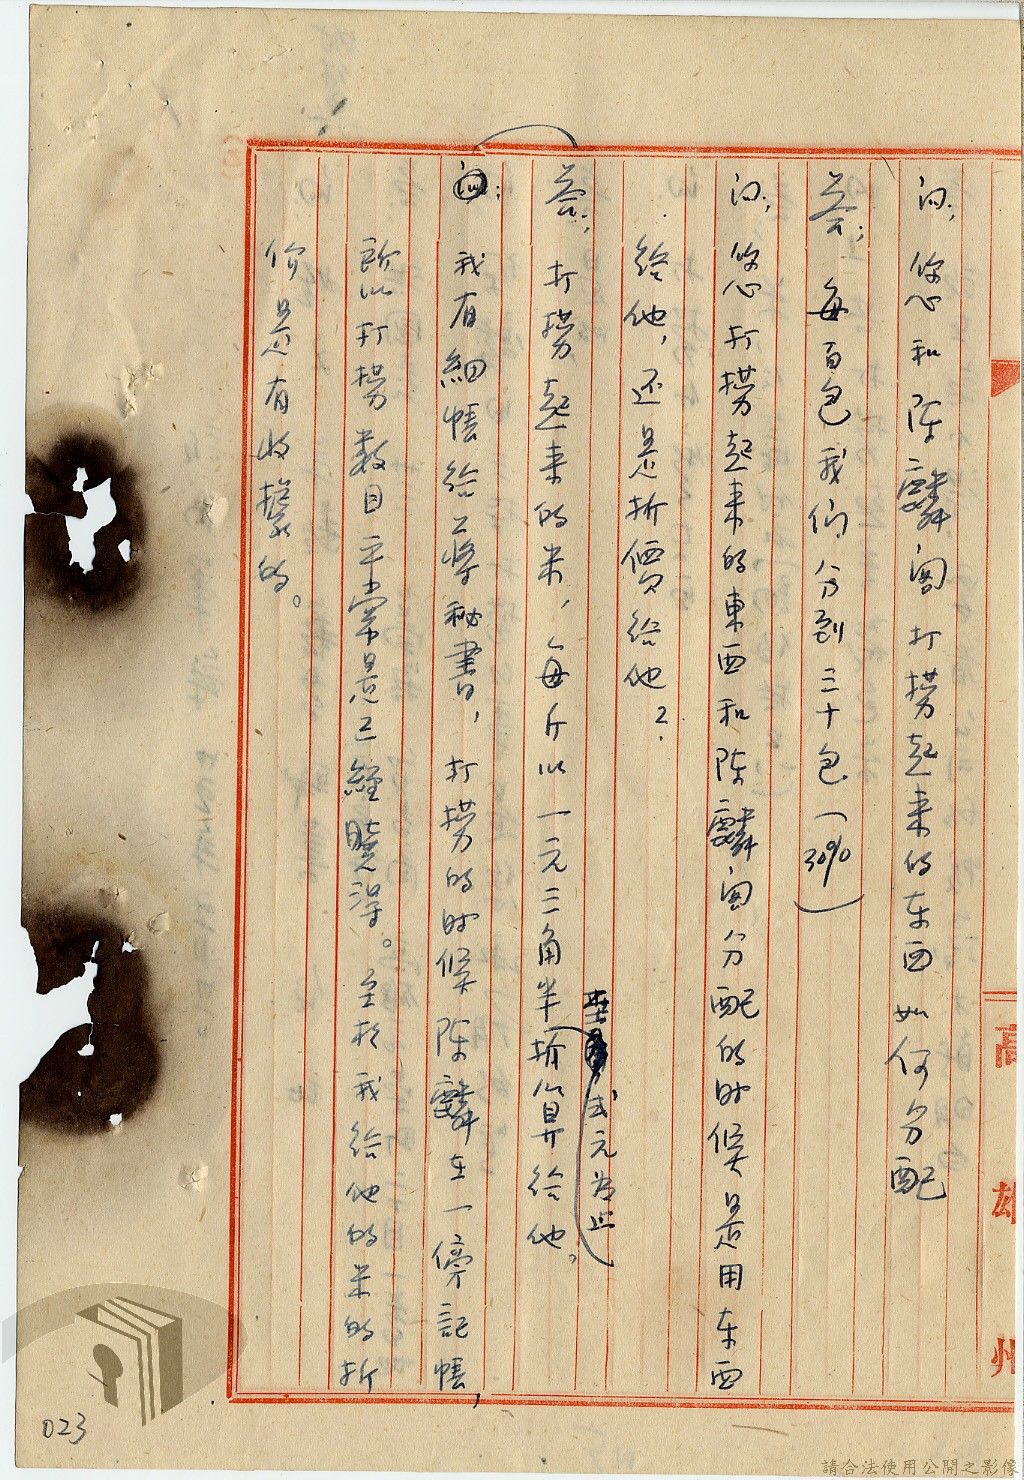 問：您和陈麟阁打撈起来的东西如何分配
荅：每百包我们分到三十包（30%）
问：您打撈起来的東西和陈麟阁分配的时候是用东西
给他，还是折價给他？
荅：打撈起来的米，每斤以一元三角半折算给他。
至 弍元为止
我有細帳给蒋秘書，打撈的时候陈麟在一傍記帳，
所以打撈数目平常是已經曉得。至於我给他的米的折
价是有收據的。
高雄州
023
請合法使用公開之影像